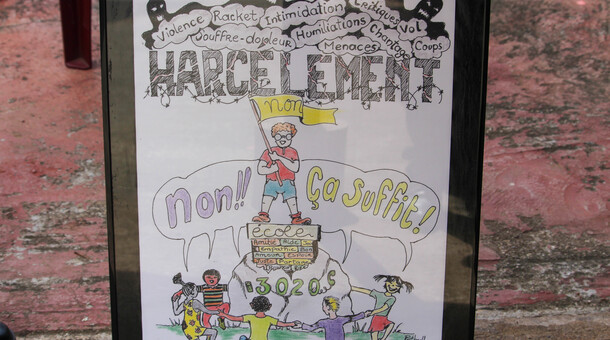 Violence Racket Intimidation Critiques Vol
Souffre-douleur Humiliations Chantage
Menaces Coups
HARCELEMENT
non
Non!! Ça suffit!
école
Amitié Aide
Empathie
Amour
Partage
3020